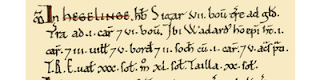 In HEGELINGE. ht̄ Sigar. VII. hoū t̄re ad gld̄.
Tra. ad. I. car̄. 7 VI. boū. Ibi Wadard̄ hō ep̄i ht̄. I.
car̄. 7 III. uitt̄ 7 V. bord̄ 7 II. soch̄ cū. I. car̄. 7 V. ac̄ p̄ti.
T.R.E. ual̄ xxx. sol̄. m̊ xl. sol̄. Tailla. xx. sol̄.